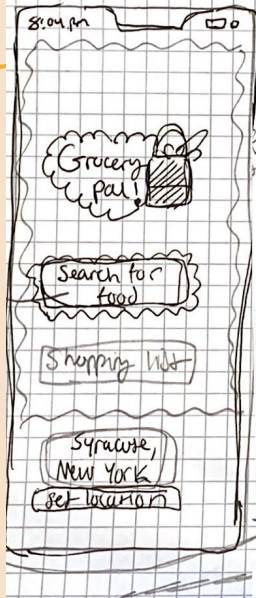 8:04 pm
Grocery
pal!
Search for
food
Shopping list
Syracuse,
New York
set location